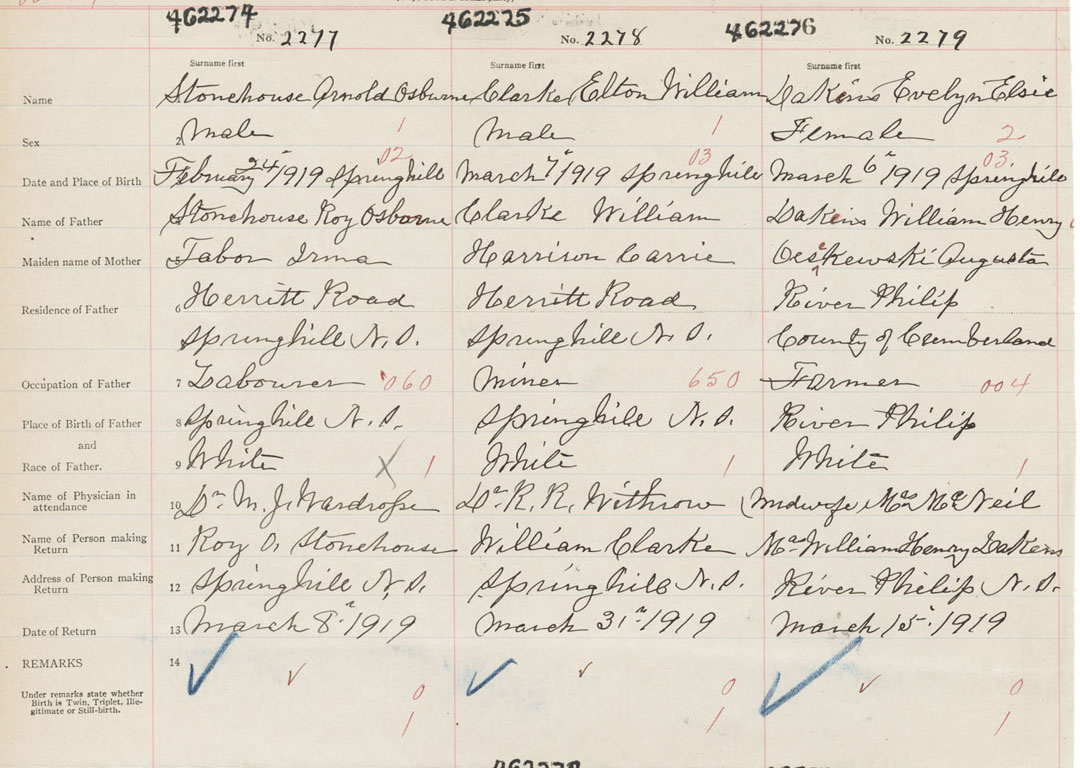 462274 462275 462276
No. 2277 No. 2278 No. 2279
Surname first Surname first Surname first
Name Stonehouse Arnold Osburne Clarke Elton William Dakins Evelyn Elsie
Sex 2 Male 1 Male 1 Female 2
02 03 03
Date and Place of Birth February 24" 1919 Springhill March 7" 1919 Springhill March 6" 1919 Springhill
Name of Father Stonehouse Roy Osborne Clarke William Dakins William Henry
Maiden name of Mother 5 Tabor Irma Harrison Carrie Augusta
Residence of Father 6 Herritt Road Herritt Road River Philip
Springhill N.S. Springhill N.S. County of Cumberland
Occupation of Father 7 Labourer 060 Miner 650 Farmer 004
Place of Birth of Father 8 Springhill N.S. Springhill N.S. River Philip
and
Race of Father. 9 White X 1 White 1 White 1
Name of Physician in
attendance 10 Dr. M. J. Wardrope Dr. R. R. Withrow Midwife Mrs McNeil
Name of Person making
Return 11 Roy O. Stonehouse William Clarke Mrs William Henry Dakens
Address of Person making
Return 12 Springhill N.S. Springhill N.S. River Philip N.S.
Date of Return 13 March 8" 1919 March 31" 1919 March 15" 1919
REMARKS 14
Under remarks state whether
Birth is Twin, Triplet, Ille-
gitimate or Still-birth.
0 0 0
1 1 1